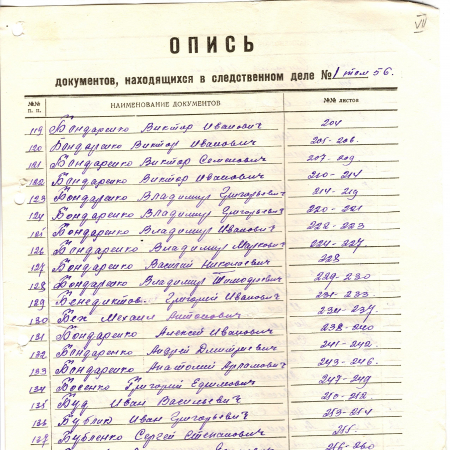 VII
ОПИСЬ
документов, находящихся в следственном деле № 1 том 56.
№№ п. п. НАИМЕНОВАНИЕ ДОКУМЕНТОВ №№ листов
119 Бондаренко Виктор Иванович 204
120 Бондаренко Виктор Иванович 205-206.
121 Бондаренко Виктор Семенович 207-209
122 Бондаренко Виктор Иванович 210-214
123 Бондаренко Владимир Григорьевич 214-219
124 Бондаренко Владимир Григорьевич 220-221
125 Бондаренко Владимир Иванович 222-223
126 Бондаренко Владимир Маркович 224-227
127 Бондаренко Василий Николаевич 228
128 Бондаренко Владимир Тимофеевич 229-230
129 Бенедиктов Григорий Иванович 231-233
130 Бех Михаил Антонович 234-237
131 Бондаренко Алексей Иванович 238-240
132 Бондаренко Андрей Дмитриевич 241-242
133 Бондаренко Анатолий 243-246
134 Григорий Ефимович 247-249
135 Буд Иван Васильевич 210-212
136 Бублик Иван Григорьевич 213-214
137 Бубленко Сергей Степанович 215.
216-220